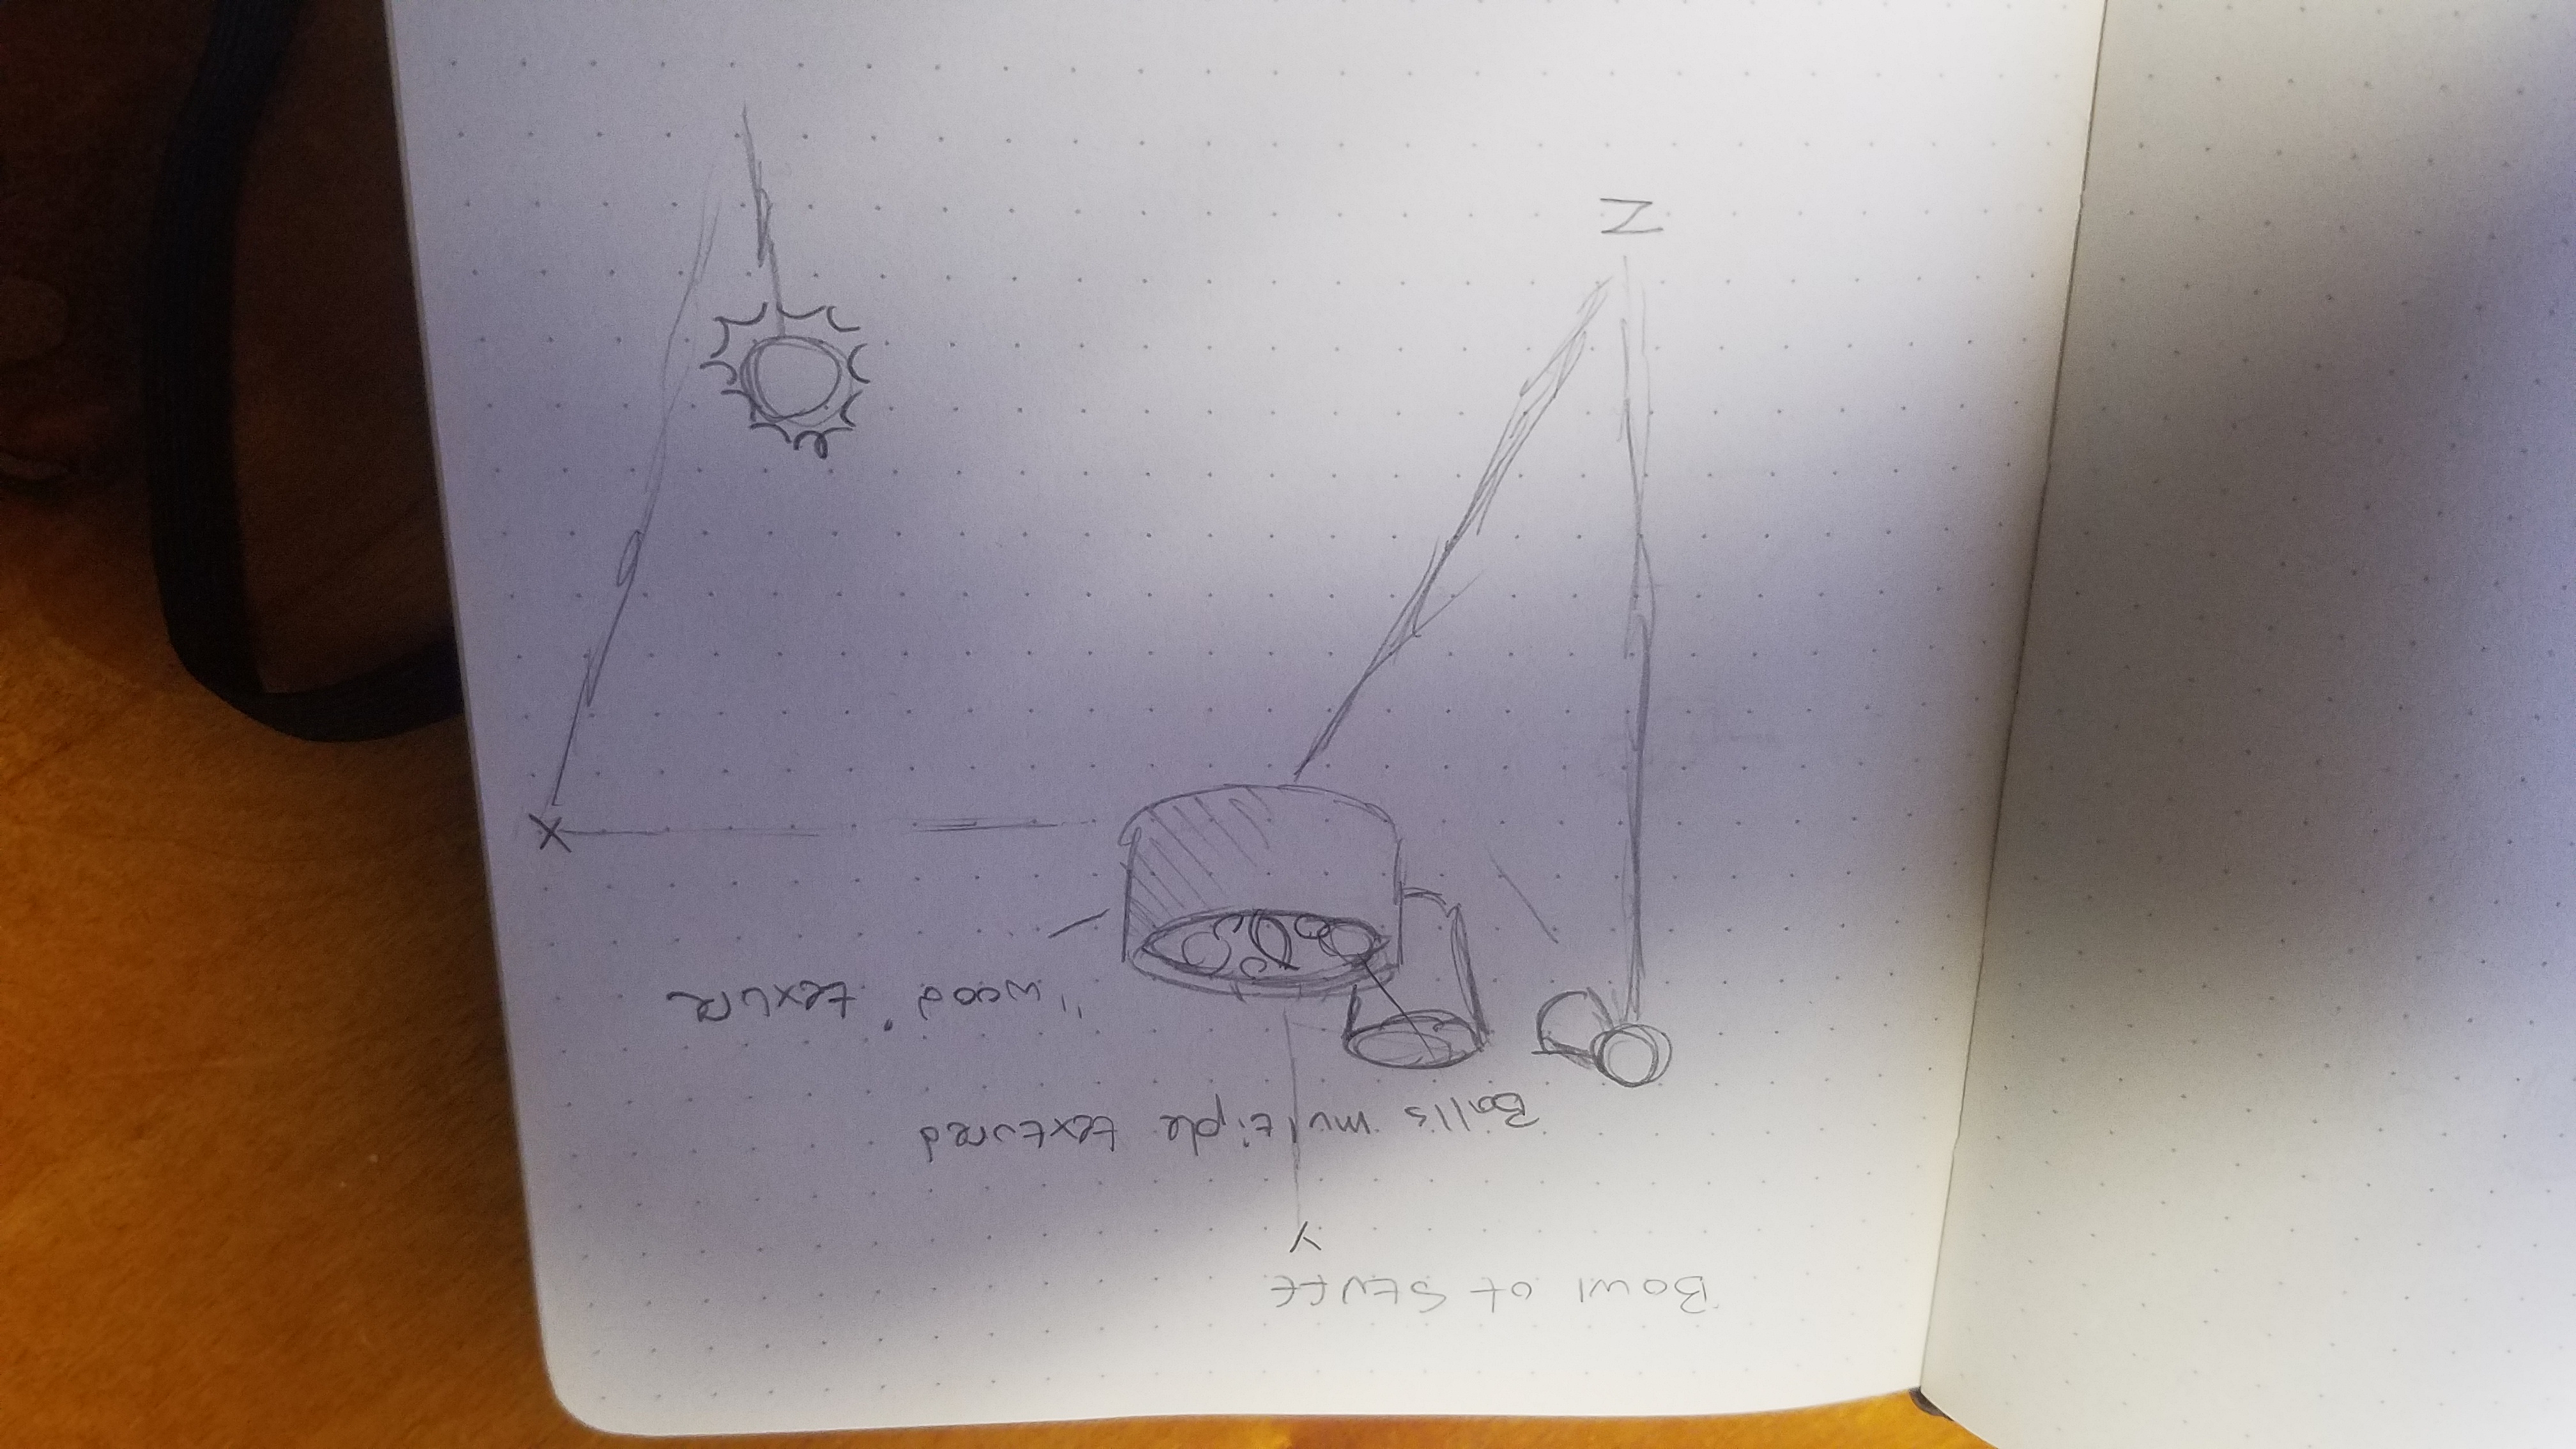 Bowl of Stuff
Y
Balls multiple textured
"wood" texture
X
Z